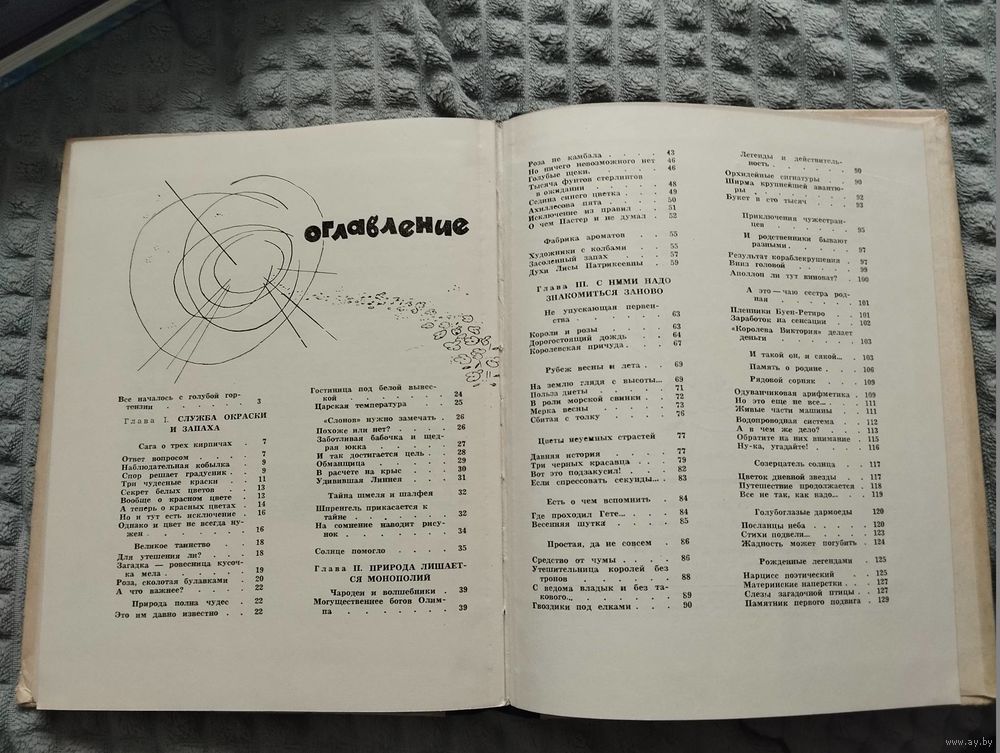 оглавление
Все началось с голубой гор-
тензии . . . . . . 3
Глава I. СЛУЖБА ОКРАСКИ
И ЗАПАХА
Сага о трех кирпичах . 7
Ответ вопросом . . . . 7
Наблюдательная кобылка . 9
Спор решает градусник . . 9
Три чудесные краски . . 11
Секрет белых цветов . . 13
Вообще о красном цвете . . 13
А теперь о красных цветах . 14
Но и тут есть исключение . 16
Однако и цвет не всегда ну-
жен . . . . . . . 16
Великое таинство . . 18
Для утешения ли? . . . 18
Загадка — ровесница кусоч-
ка мела . . . . . . 19
Роза, сколотая булавками . 20
А что важнее? . . . . 22
Природа полна чудес . 22
Это им давно известно . . 22
Гостиница под белой вывес-
кой . . . . . . . 24
Царская температура . . 25
«Слонов» нужно замечать . 26
Похоже или нет? . . . . 26
Заботливая бабочка и щед-
рая юкка . . . . . 27
И так достигается цель . . 28
Обманщица . . . . . 29
В расчете на крыс . . . 30
Удивившая Линнея . . . 31
Тайна шмеля и шалфея 32
Шпренгель прикасается к
тайне . . . . . . . 32
На сомнение наводит рису-
нок . . . . . . . 34
Солнце помогло . . . . 35
Глава II. ПРИРОДА ЛИШАЕТ-
СЯ МОНОПОЛИЙ
Чародеи и волшебники . 39
Могущественнее богов Олим-
па . . . . . . . . 39
Роза не камбала . . . . 43
Но ничего невозможного нет 46
Голубые щеки . . . . . 46
Тысяча фунтов стерлингов
в ожидании . . . . . 48
Седина синего цветка . . 49
Ахиллесова пята . . . . 50
Исключение из правил . . 51
О чем Пастер и не думал . 52
Фабрика ароматов . . 55
Художники с колбами . . 55
Засоленный запах . . . 57
Духи Лисы Патрикеевны . 59
Глава III. С НИМИ НАДО
ЗНАКОМИТЬСЯ ЗАНОВО
Не упускающая первен-
ства . . . . . . . 63
Короли и розы . . . . 63
Дорогостоящий дождь . . 64
Королевская причуда . . . 67
Рубеж весны и лета . . 69
На землю глядя с высоты... 69
Польза диеты . . . . . 71
В роли морской свинки . . 72
Мерка весны . . . . . 73
Сбитая с толку . . . . 76
Цветы неуемных страстей 77
Давняя история . . . . 77
Три черных красавца . . 79
Вот это подзакусил! . . . 82
Если спрессовать секунды... 83
Есть о чем вспомнить . 84
Где проходил Гете... . . . 84
Весенняя шутка . . . . 85
Простая, да не совсем . 86
Средство от чумы . . . . 86
Утешительница королей без
тронов . . . . . . 88
С ведома владык и без та-
кового... . . . . . . 89
Гвоздики под елками . . . 90
Легенды и действитель-
ность . . . . . . . 90
Орхидейные сигнатуры . . 90
Ширма крупнейшей авантю-
ры . . . . . . . . 92
Букет в сто тысяч . . . 93
Приключения чужестран-
цев . . . . . . . 95
И родственники бывают
разными . . . . . . 97
Результат кораблекрушения . 97
Вниз головой . . . . . 99
Аполлон ли тут виноват? . 100
А это — чаю сестра род-
ная . . . . . . . 101
Пленники Буен-Ретиро . . 101
Заработок на сенсации . . 102
«Королева Виктория» делает
деньги . . . . . . 103
И такой он, и сякой... . 103
Память о родине . . . 106
Рядовой сорняк . . . 109
Одуванчиковая арифметика . 109
Но это еще не все... . . . 111
Живые части машины . . 111
Водопроводная система . . 112
А в чем же дело? . . . 113
Обратите на них внимание . 115
Ну-ка, угадайте! . . . . 116
Созерцатель солнца . 117
Цветок дневной звезды . . 117
Путешествие продолжается . 118
Все не так, как надо... . . 119
Голубоглазые дармоеды 120
Посланцы неба . . . . 120
Стихи подвели... . . . . 123
Жадность может погубить . 124
Рожденные легендами . 125
Нарцисс поэтический . . 125
Материнские наперстки . . 127
Слезы загадочной птицы . . 127
Памятник первого подвига . 129
www.ay.by